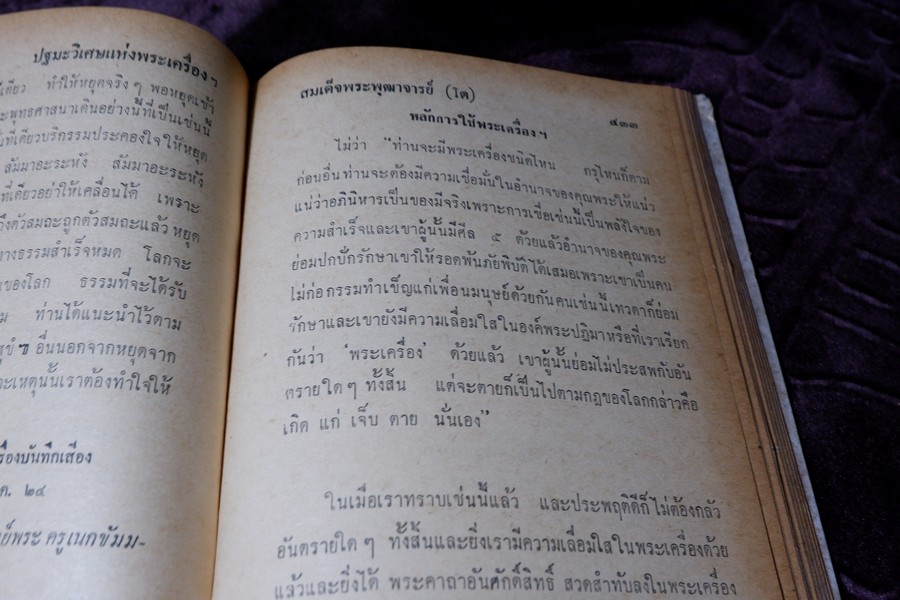 ปฐมะวิเศษแห่งพระเครื่อง ฯ
ทำให้หยุดจริง ๆ พอหยุดเข้า
พุทธศาสนาเดินอย่างนี้ที่เป็นเช่นนี้
ที่เดียวบริกรรมประคองใจให้หยุด
สัมมาอะระหัง สัมมาอะระหัง
ที่เดียวอย่าให้เคลื่อนได้ เพราะ
ถึงตัวสมถะถูกตัวสมถะแล้ว หยุด
ทางธรรมสำเร็จหมด โลกจะ
ของโลก ธรรมที่จะได้รับ
ท่านได้แนะนำไว้ตาม
อื่นนอกจากหยุดจาก
เพราะเหตุนั้นเราต้องทำใจให้
เครื่องบันทึกเสียง
ค. ๒๔
พระ ครูเนกขัมม-
สมเด็จพระพุฒาจารย์ (โต)
๔๓๓
หลักการใช้พระเครื่อง ฯ
ไม่ว่า “ท่านจะมีพระเครื่องชนิดไหน กรุไหนก็ตาม
ก่อนอื่นท่านจะต้องมีความเชื่อมั่นในอำนาจของคุณพระให้แน่ว
แน่ว่าอภินิหารเป็นของมีจริงเพราะการเชื่อเช่นนี้เป็นพลังใจของ
ความสำเร็จและเขาผู้นั้นมีศีล ๕ ด้วยแล้วอำนาจของคุณพระ
ย่อมปกปักรักษาเขาให้รอดพ้นภัยพิบัติได้เสมอเพราะเขาเป็นคน
ไม่ก่อกรรมทำเข็ญแก่เพื่อนมนุษย์ด้วยกันคนเช่นนี้เทวดาก็ย่อม
รักษาและเขายังมีความเลื่อมใสในองค์พระปฏิมาหรือที่เราเรียก
กันว่า ‘พระเครื่อง’ ด้วยแล้ว เขาผู้นั้นย่อมไม่ประสพกับอัน
ตรายใด ๆ ทั้งสิ้น แต่จะตายก็เป็นไปตามกฎของโลกกล่าวคือ
เกิด แก่ เจ็บ ตาย นั่นเอง”
ในเมื่อเราทราบเช่นนี้แล้ว และประพฤติดีก็ไม่ต้องกลัว
อันตรายใด ๆ ทั้งสิ้นและยิ่งเรามีความเลื่อมใสในพระเครื่องด้วย
แล้วและยิ่งได้ พระคาถาอันศักดิ์สิทธ์ สวดสำทับลงในพระเครื่อง